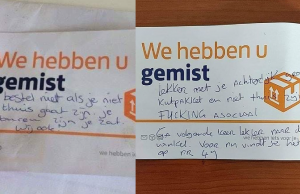 We hebben u
gemist
bestel niet als je niet
thuis gaat zijn je
zijn je zat
We hebben u
gemist
lekker met je
kutpakket en niet thuis
FUCKING ASOCIAAL
volgende keer lekker naar de
winkel voor nu vindt je het
op nr 49
we hebben iets voor